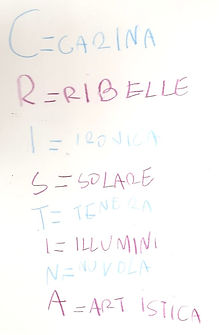 C=CARINA
R=RIBELLE
I=IRONICA
S=SOLARE
T=TENERA
I=ILLUMINI
N=NUVOLA
A=ARTISTICA